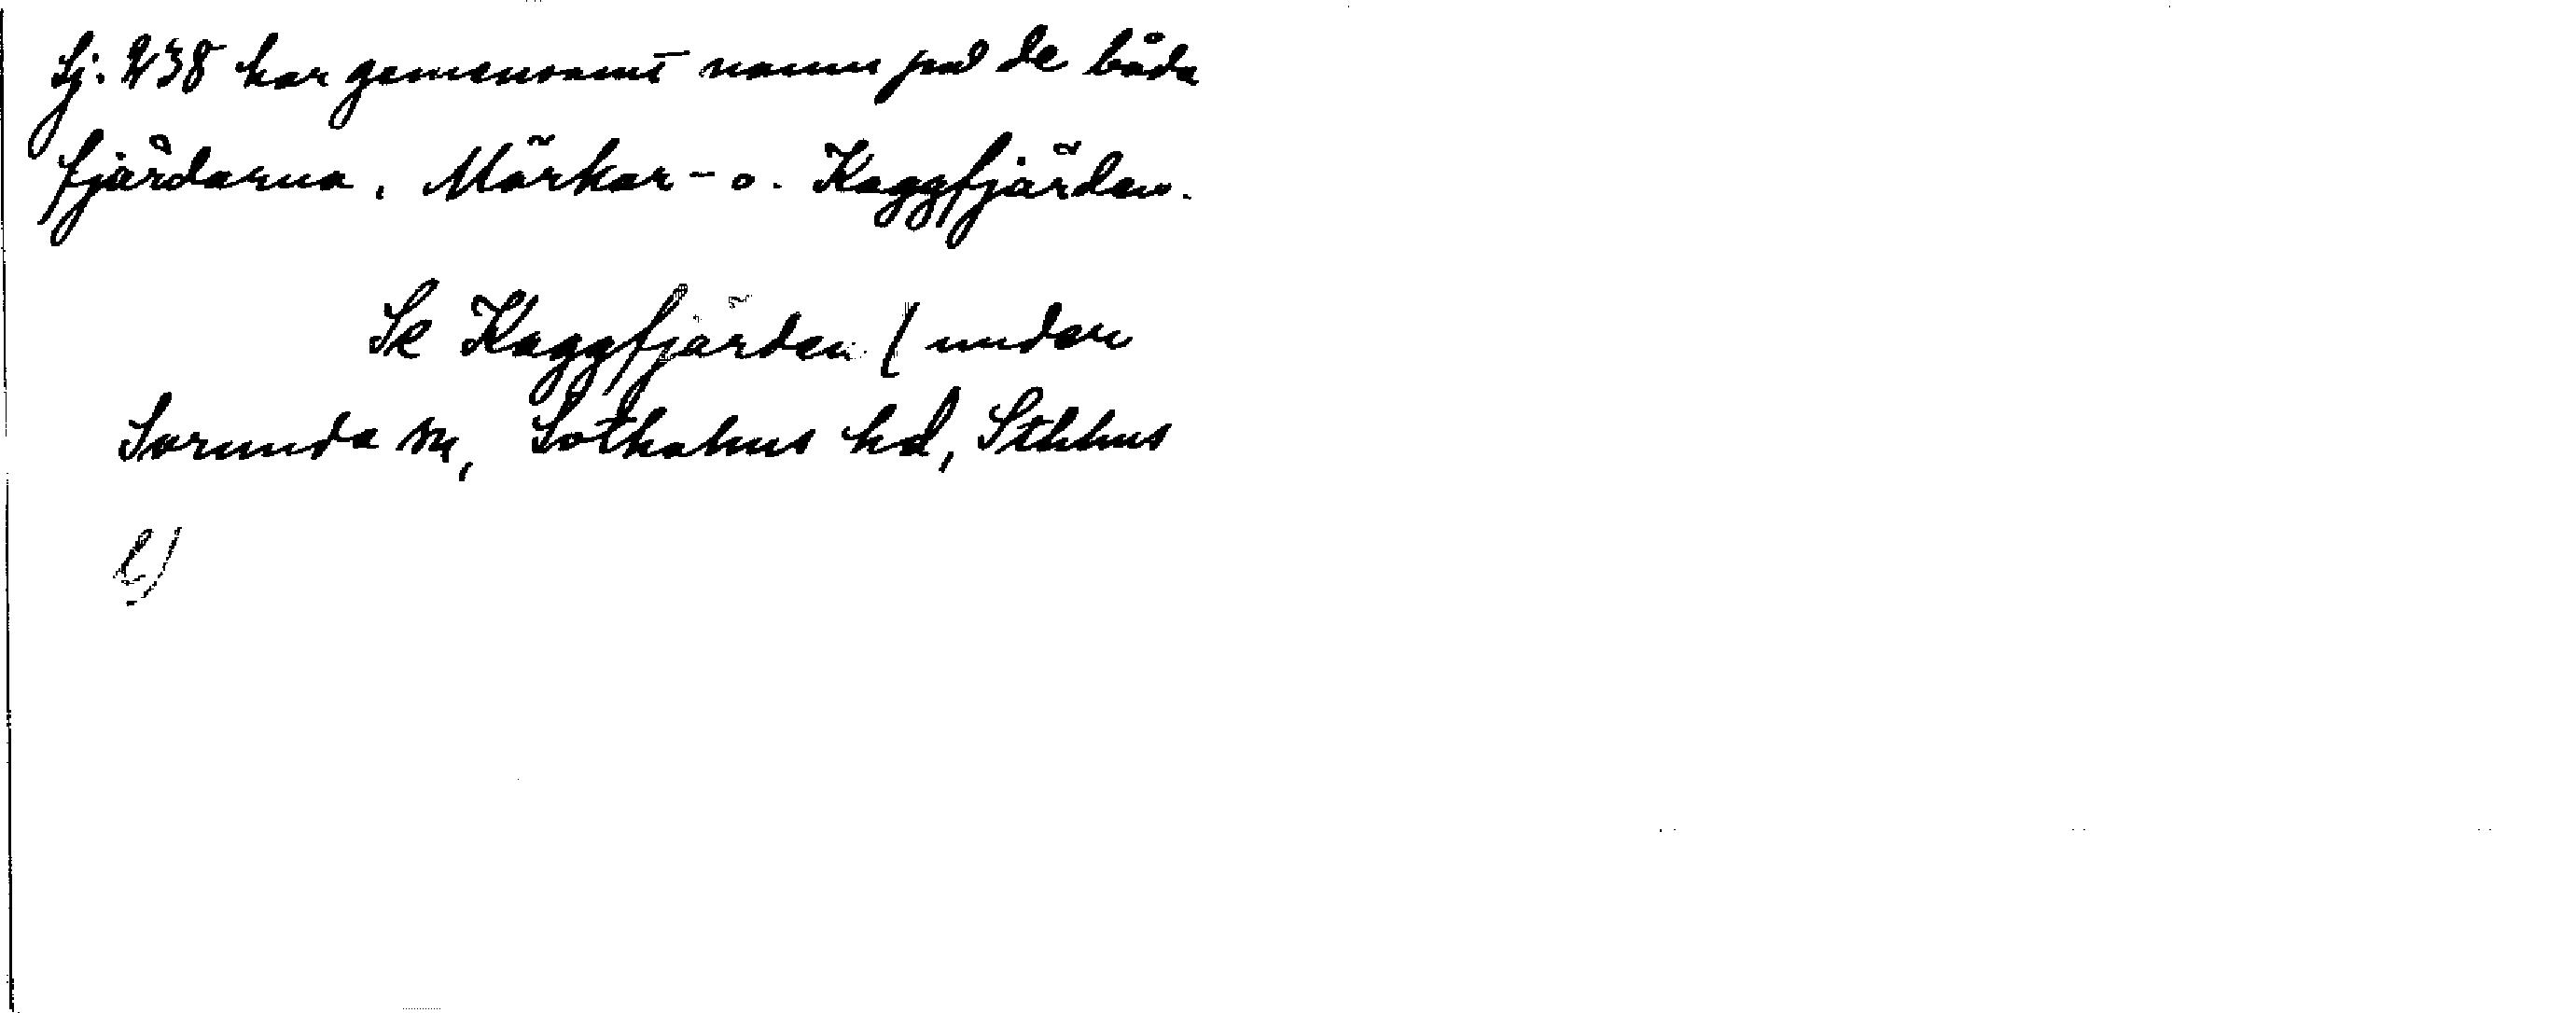 Sj. 238 har gemensamt namn på de båda
fjärdarna, Mörkar- o. Kaggfjärden.
Se Kaggfjärden (under
Sorunda sn, Sotholms hd, Sthlms
l)